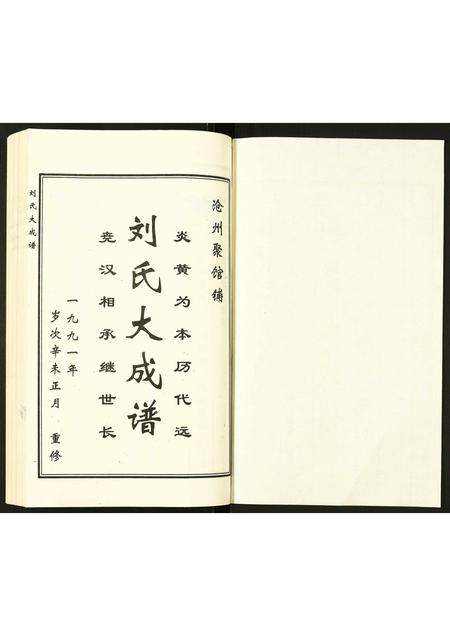 沧州聚馆铺
炎黄为本历代远
刘氏大成谱
尧汉相承继世长
一九九一年
岁次辛未正月 重修
刘氏大成谱